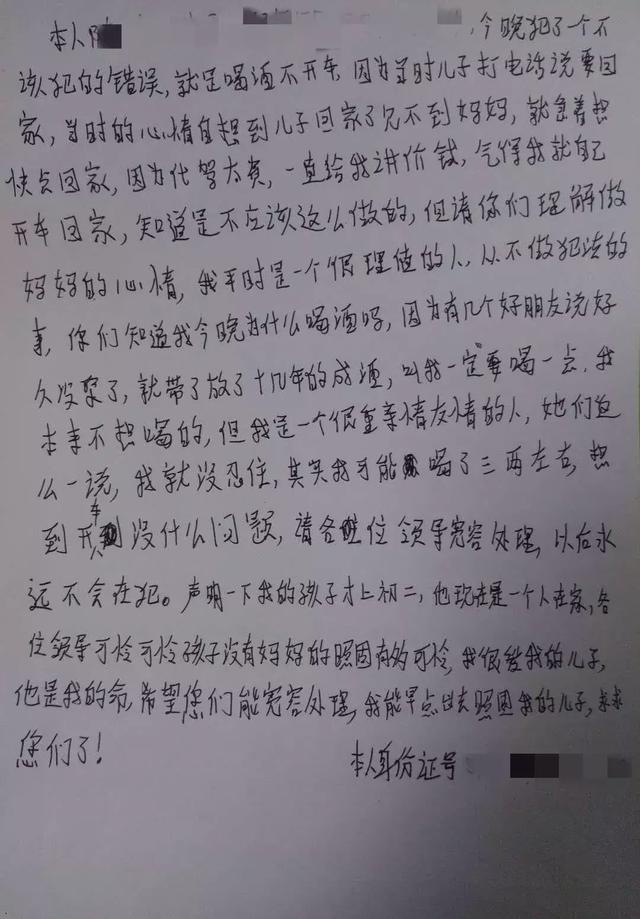 本人陈 今晚犯了一个不
该犯的错误，就是喝酒不开车，因为当时儿子打电话说要回
家，当时的心情自想到儿子回家了见不到妈妈，就急着想
快点回家，因为代驾太贵，一直给我讲价钱，气得我就自己
开车回家，知道是不应该这么做的，但请你们理解做
妈妈的心情，我平时是一个很理值的人，从不做犯法的
事，你们知道我今晚为什么喝酒吗，因为有几个好朋友说好
久没聚了，就带了放了十几年的成酒，叫我一定要喝一点，我
本来不想喝的，但我是一个很重亲情友情的人，她们这
么一说，我就没忍住，其实我可能喝了三两左右，想
到开车没什么问题，请各位领导宽容处理，以后永
远不会在犯。声明一下我的孩子才上初二，他现在是一个人在家，各
位领导可怜可怜孩子没有妈妈的照固有多可怜，我很爱我的儿子，
他是我的命，希望您们能宽容处理，我能早点出去照固我的儿子，求求
您们了！
本人身份证号